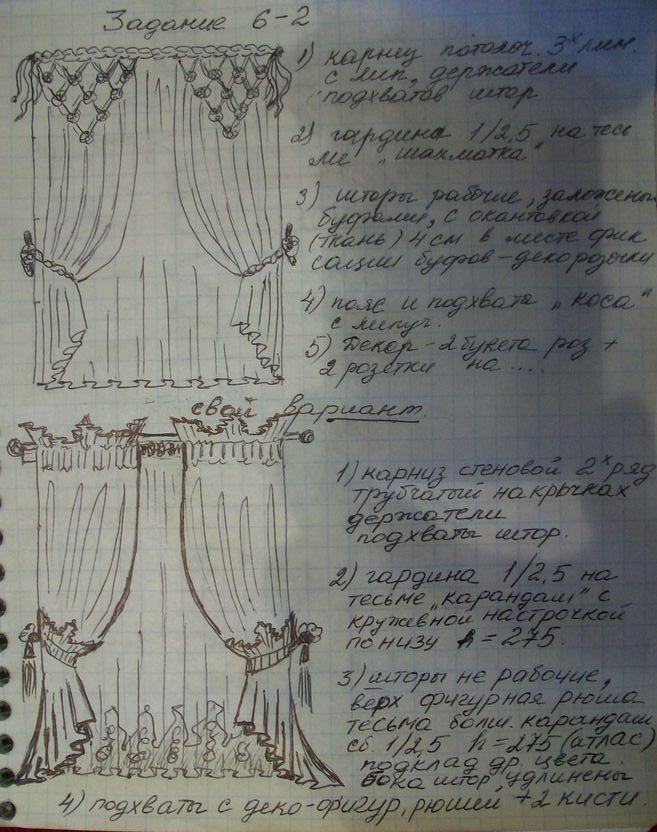 Задание 6-2
1) карниз потолоч. 3х лин.
с лип, держатели
подхватов штор
2) гардина 1/2,5 на тесь
ме "шахматка"
3) шторы рабочие, заложены
буфами, с окантовкой
(ткань) 4 см в месте фик
сации буфов - декорозочки
4) пояс и подхваты "коса"
с липуч.
5) Декор - 2 букета роз +
2 розетки на ....
свой вариант.
1) карниз стеновой 2х ряд
трубчатый на крючках
держатели
подхваты штор.
2) гардина 1/2,5 на
тесьме "карандаш" с
кружевной настрочкой
по низу h = 275.
3) шторы не рабочие,
верх фигурная рюша
тесьма больш. карандаш
сб. 1/2,5 h = 275 (атлас)
подклад др. цвета.
бока штор, удлинены
4) подхваты с деко-фигур, рюшей + 2 кисти.